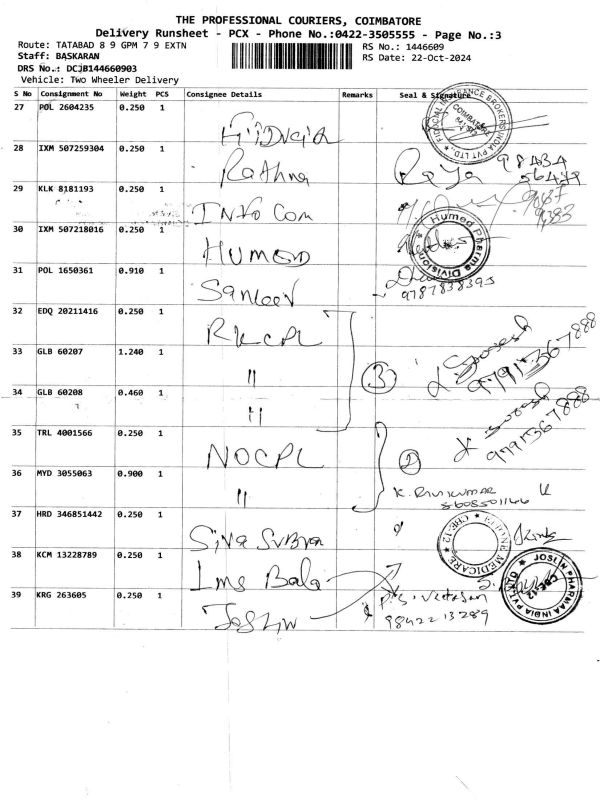 THE PROFESSIONAL COURIERS, COIMBATORE
Delivery Runsheet - PCX - Phone No.:0422-3505555 - Page No.:3
Route: TATABAD 8 9 GPM 7 9 EXTN
RS No.: 1446609
Staff: BASKARAN
RS Date: 22-Oct-2024
DRS No.: DCJB144660903
Vehicle: Two Wheeler Delivery
S No Consignment No Weight PCS Consignee Details Remarks Seal & Signature
27 POL 2604235 0.250 1
28 IXM 507259304 0.250 1 Rathna Raja 98434
29 KLK 8181193 0.250 1 Info Com
30 IXM 507218016 0.250 1 HUMED Humed Pharma Division
31 POL 1650361 0.910 1 Sanjeev
32 EDQ 20211416 0.250 1 RKCPL
33 GLB 60207 1.240 1 " 3 Suresh 9791567888
34 GLB 60208 0.460 1 "
35 TRL 4001566 0.250 1 NOCPL 2 Suresh 9791567888
36 MYD 3055063 0.900 1 " K. RAVIKUMAR
37 HRD 346851442 0.250 1 Siva Subra
38 KCM 13228789 0.250 1 Ims Bala
39 KRG 263605 0.250 1 Joslin 9842213289
JOSLIN PHARMAA INDIA PVT LTD